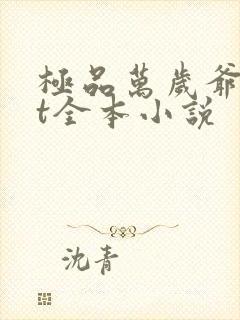 極品萬歲爺
t全本小説
沈青